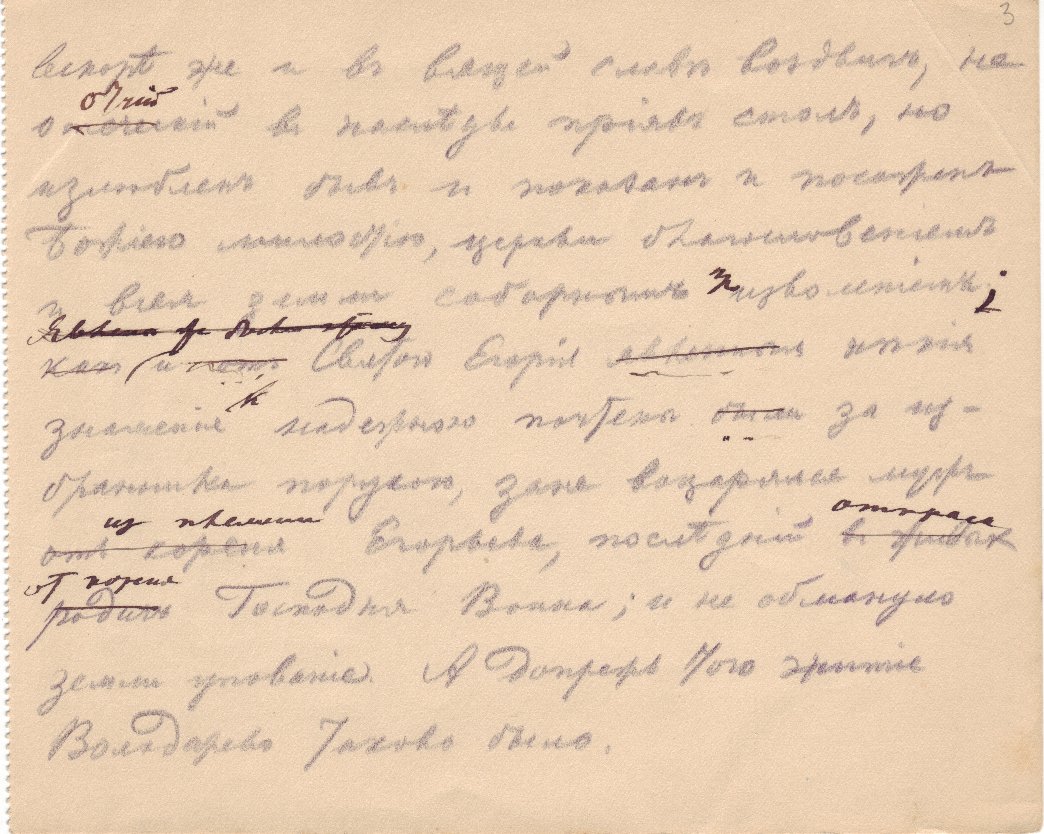 3
вскорѣ же и въ вящей славѣ воздвигъ, не
отчій
отческій въ наслѣдье пріявъ столъ, но
излюбленъ бывъ и показанъ и посаженъ
Божіею милостію, церкви благословеніемъ
и всея земли соборнымъ изволеніемъ;
какъ и Святою Егорія нѣкія
знаменія надежною почтены были за из-
бранника порукою, зане воцарялся мужъ
изъ племени
отъ кореня Егорьева, послѣдній въ
от корня
родичъ Господня Воина; и не обмануло
земли упованіе. А допрежь того житіе
Володарево таково было.